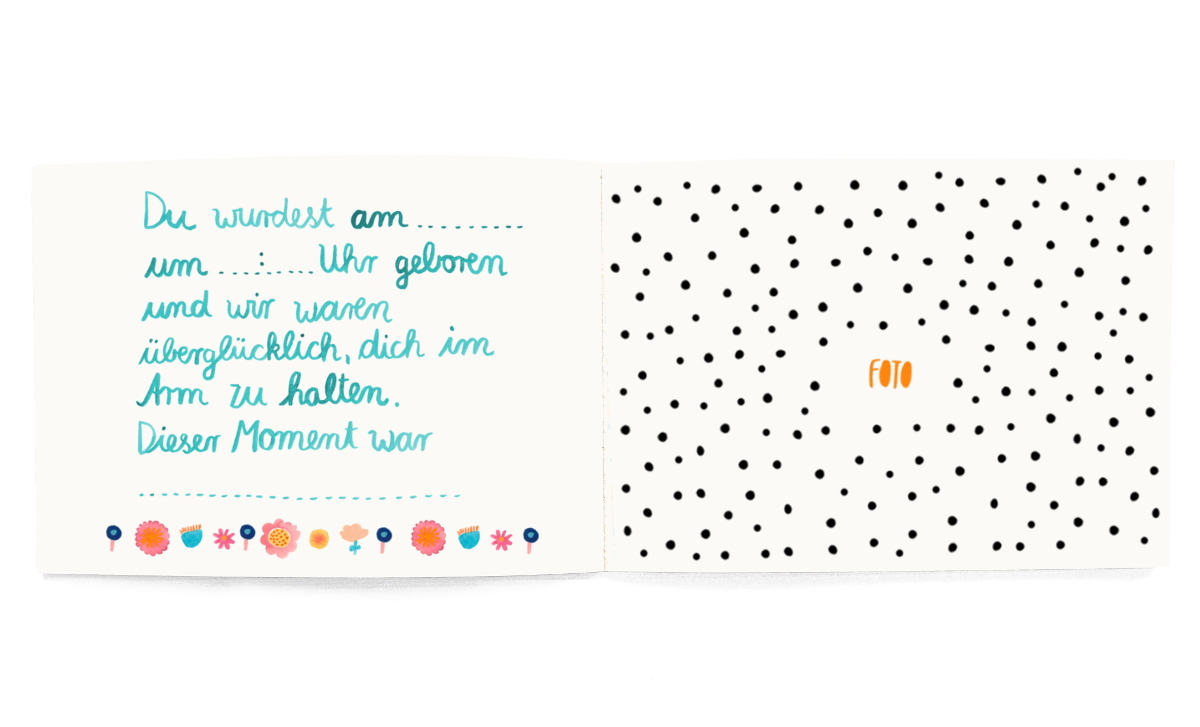 Du wurdest am ..........
um ....:...... Uhr geboren
und wir waren
überglücklich, dich im
Arm zu halten.
Dieser Moment war
..............................
FOTO